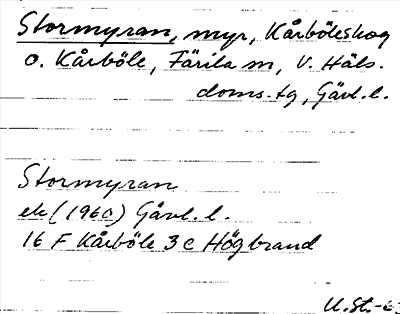 Stormyran, myr, Kårböleskog
o. Kårböle, Färila sn, V. Häls.
doms. tg, Gävl. l.
Stormyran
ek (1960) Gävl. l.
16 F Kårböle 3 c Högbrand
U. St. -63